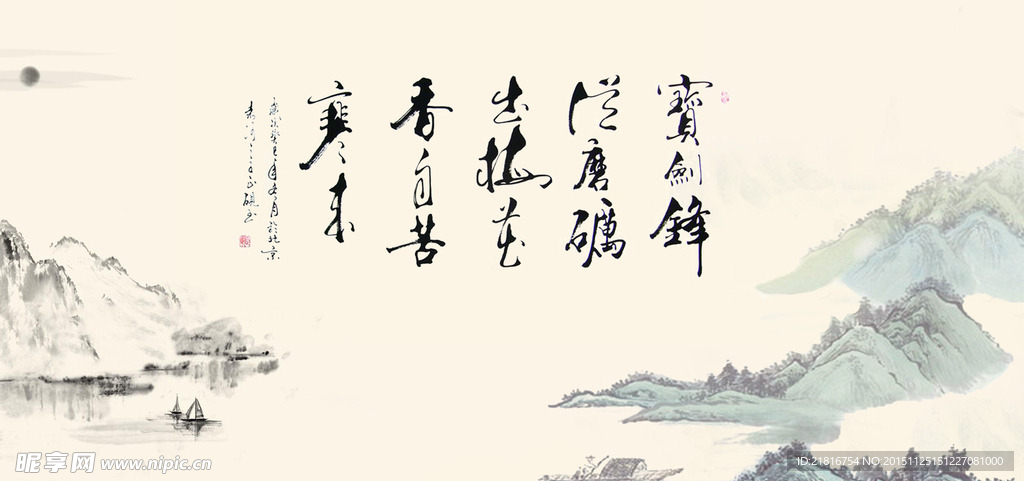 寶劍鋒
從磨礪
出梅花
香自苦
寒來
歲次癸巳年冬月於北京
昵享网 www.nipic.cn
ID:21816754 NO:20151125151227081000